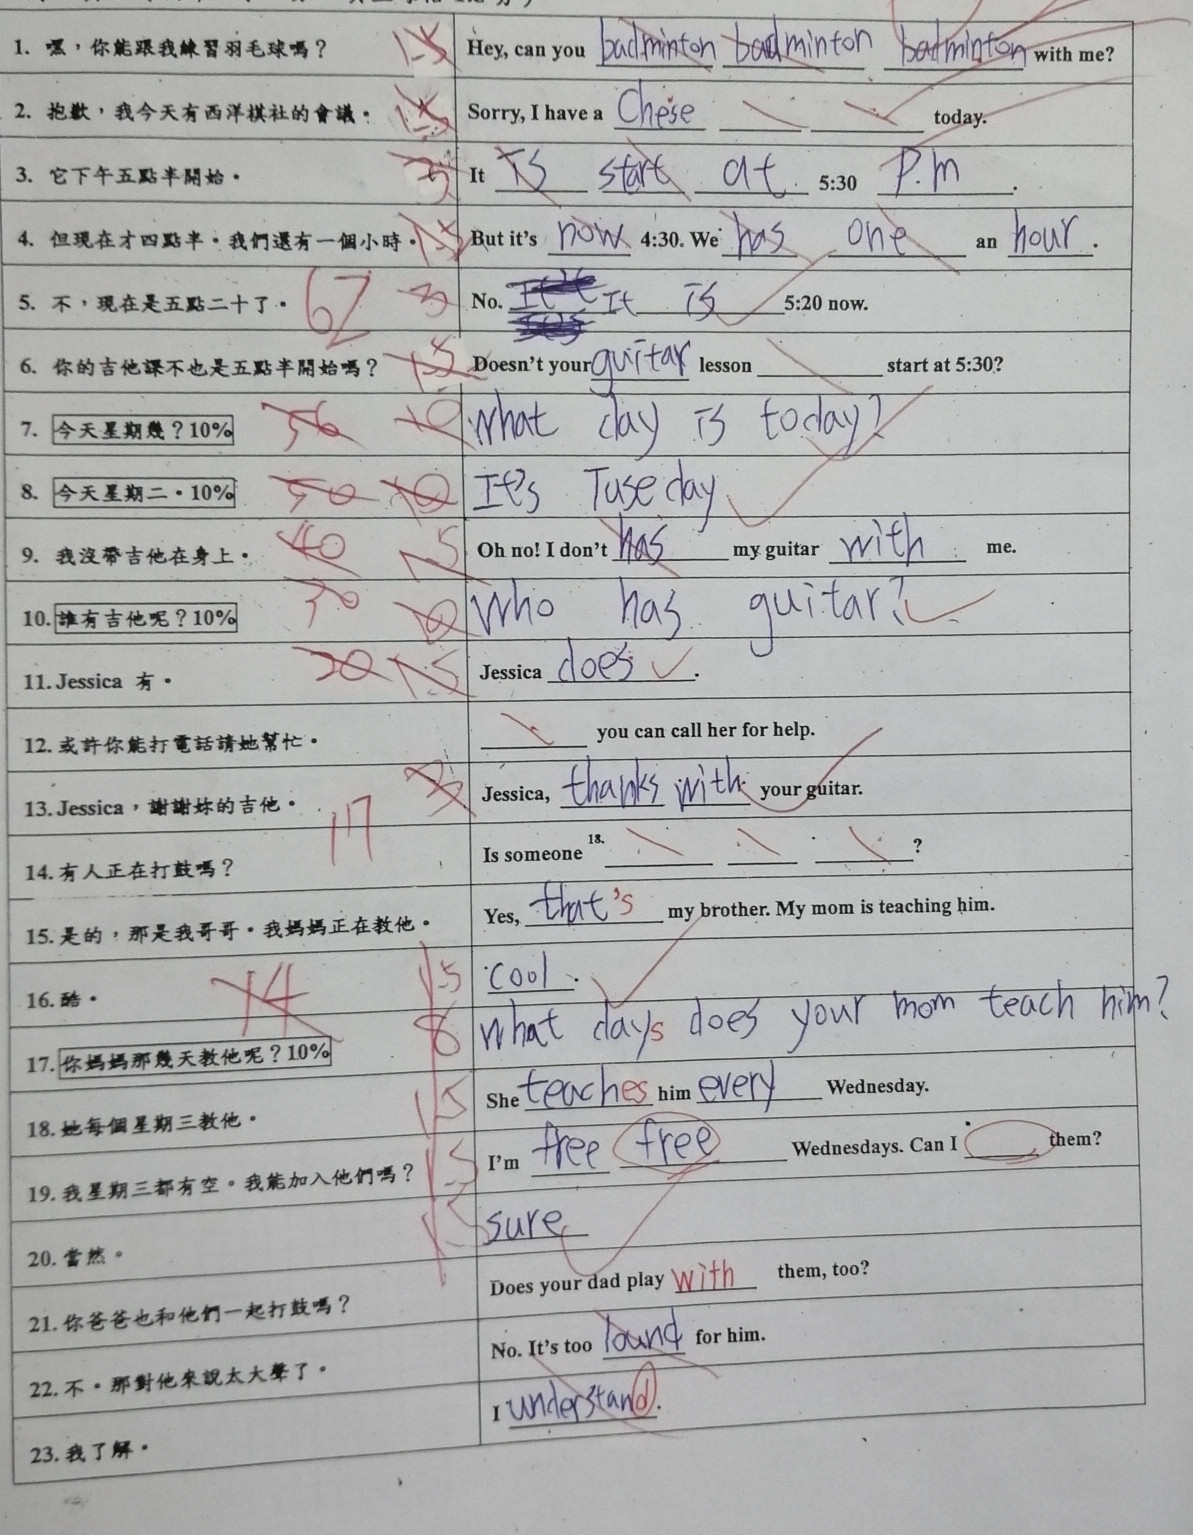 1. 嘿，你能跟我練習羽毛球嗎？ 1.5 Hey, can you badminton badminton badminton with me?
2. 抱歉，我今天有西洋棋社的會議。 1.5 Sorry, I have a Chese today.
3. 它下午五點半開始。 3 It is start at 5:30 P.m.
4. 但現在才四點半。我們還有一個小時。 1.5 But it's now 4:30. We has one an hour.
5. 不，現在是五點二十了。 62 3 No. It is 5:20 now.
6. 你的吉他課不也是五點半開始嗎？ 1.5 Doesn't your guitar lesson start at 5:30?
7. 今天星期幾？10% 56 10 What day is today?
8. 今天星期二。10% 50 10 It's Tuseday
9. 我沒帶吉他在身上。 40 1.5 Oh no! I don't has my guitar with me.
10. 誰有吉他呢？10% 30 10 Who has guitar?
11. Jessica 有。 20 1.5 Jessica does.
12. 或許你能打電話請她幫忙。 you can call her for help.
13. Jessica，謝謝妳的吉他。 17 3 Jessica, thanks with your guitar.
14. 有人正在打鼓嗎？ Is someone 18. ?
15. 是的，那是我哥哥。我媽媽正在教他。 Yes, that's my brother. My mom is teaching him.
16. 酷。 14 1.5 cool.
17. 你媽媽那幾天教他呢？10% 8 What days does your mom teach him?
18. 她每個星期三教他。 1.5 She teaches him every Wednesday.
19. 我星期三都有空。我能加入他們嗎？ 1.5 I'm free free Wednesdays. Can I them?
20. 當然。 1.5 sure
21. 你爸爸也和他們一起打鼓嗎？ Does your dad play with them, too?
22. 不。那對他來說太大聲了。 No. It's too lound for him.
23. 我了解。 I understand.